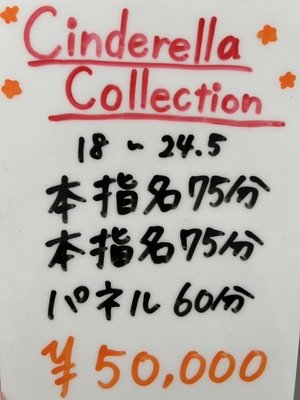 Cinderella
Collection
18~24.5
本指名75分
本指名75分
パネル60分
¥50,000